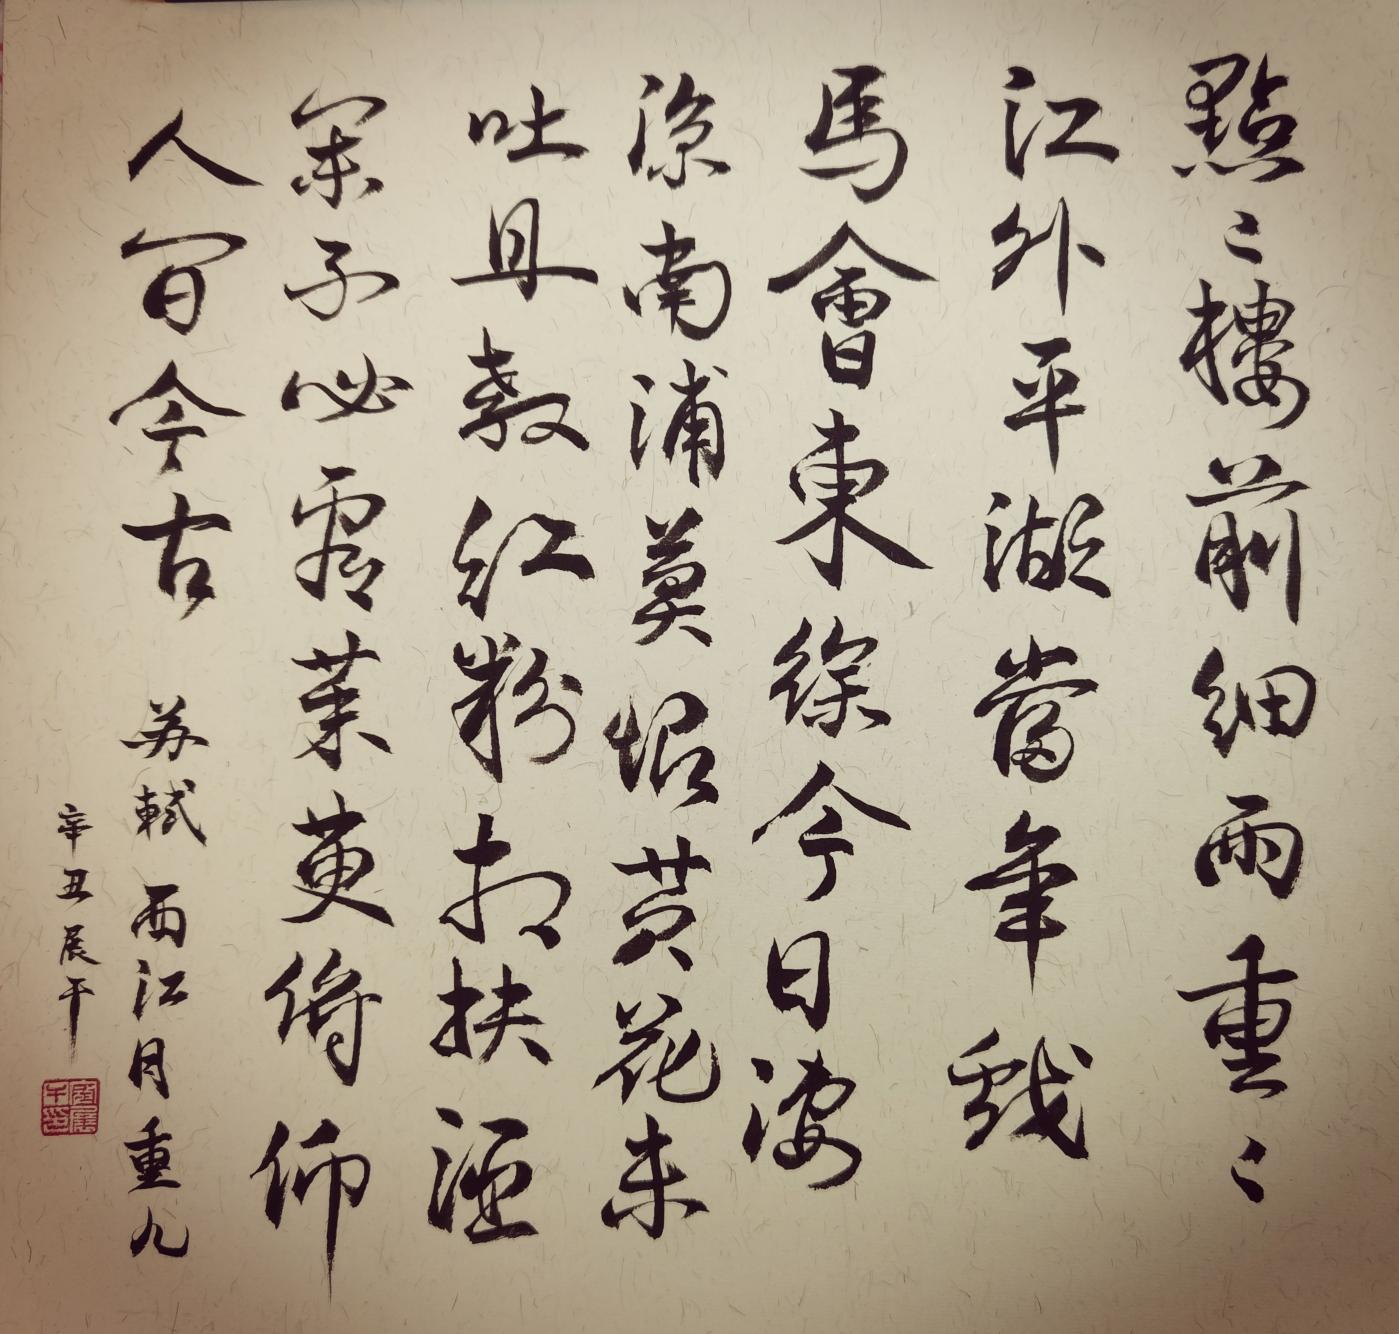 點〻樓前細雨重〻
江外平湖當年戲
馬會東徐今日淒
涼南浦莫恨黃花未
吐且教紅粉相扶酒
闌不必看茱萸俯仰
人間今古 苏軾 西江月重九
辛丑展